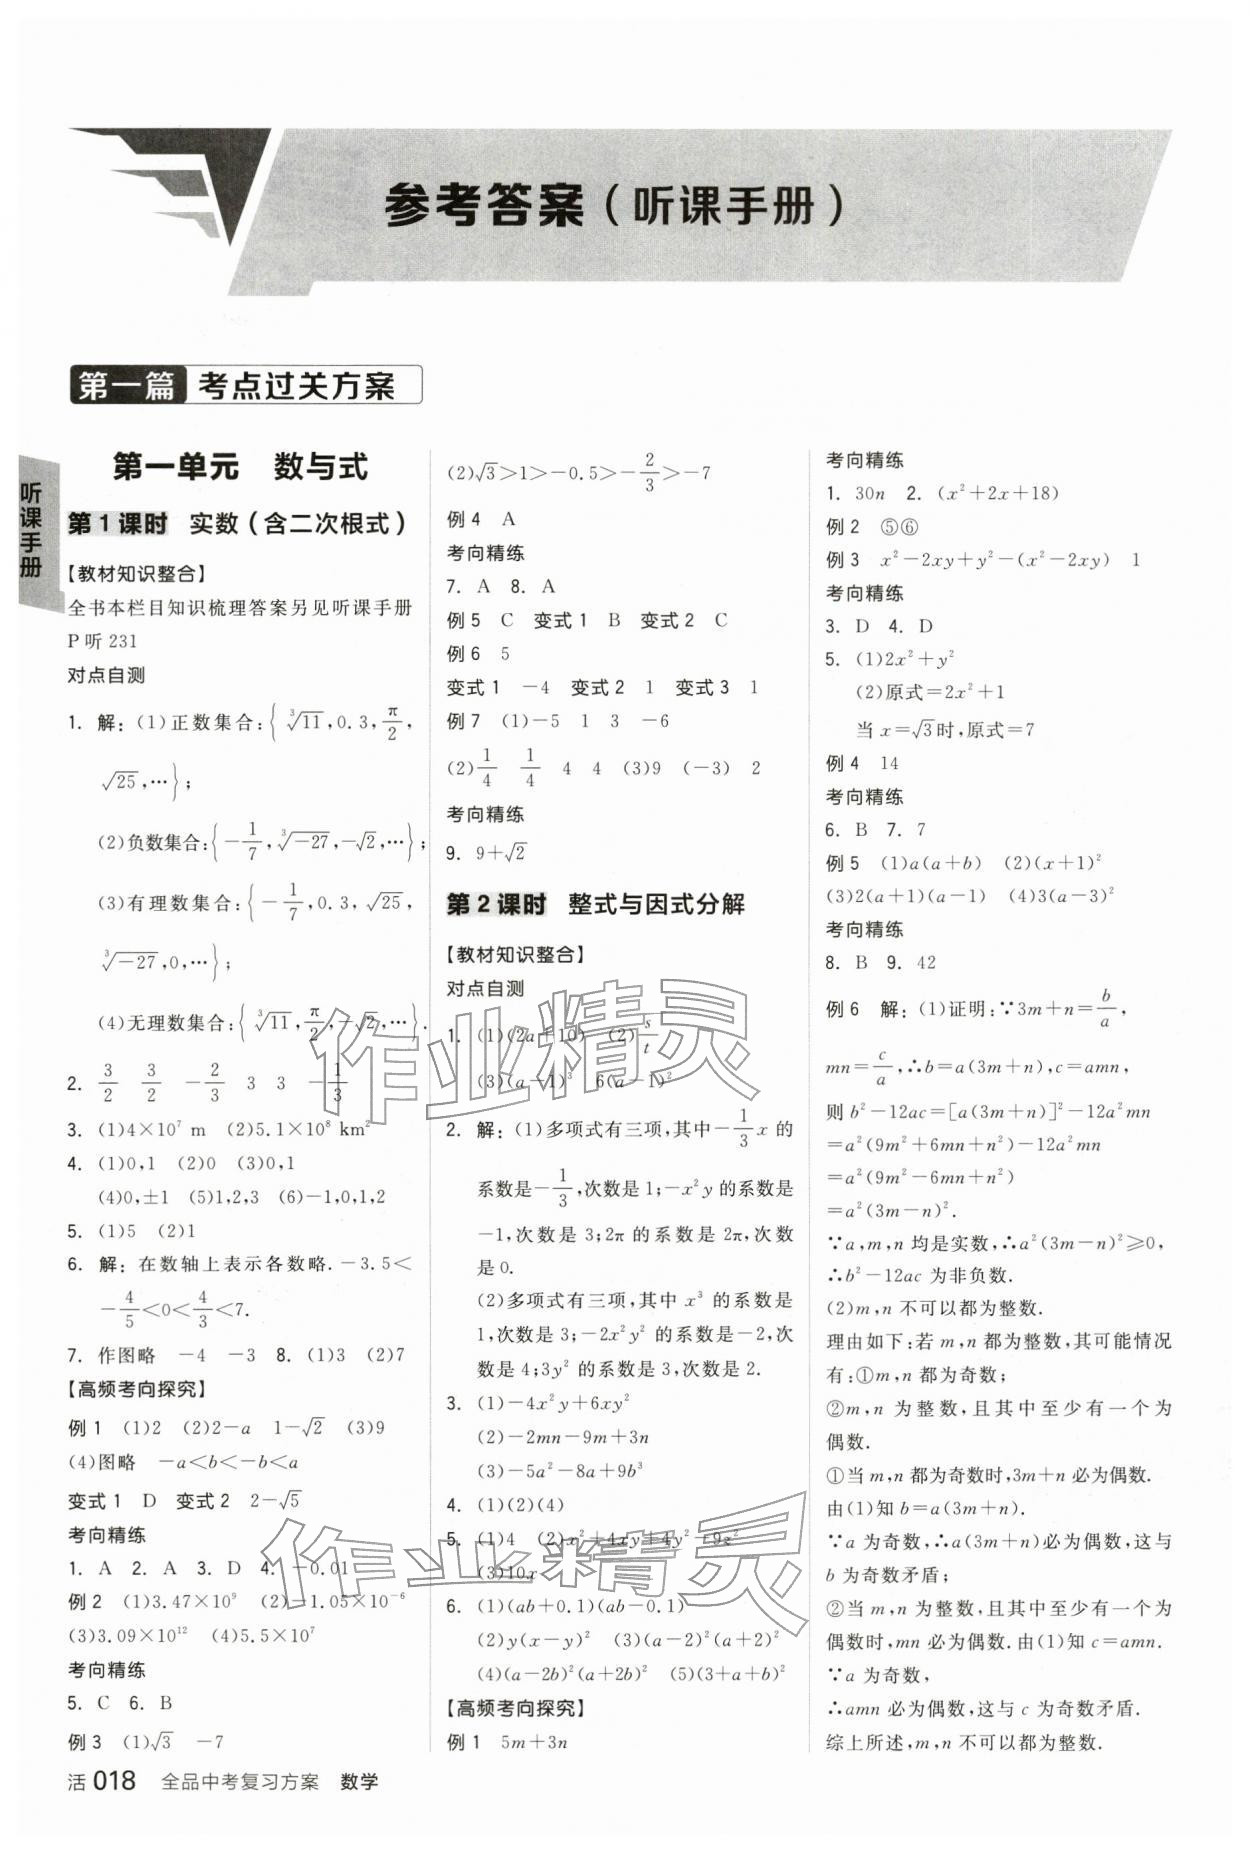 参考答案（听课手册）
第一篇 考点过关方案
听课手册
第一单元 数与式
第1课时 实数（含二次根式）
【教材知识整合】
全书本栏目知识梳理答案另见听课手册
P听231
对点自测
1. 解：(1)正数集合：{∛11，0.3，π/2，
√25，…}；
(2)负数集合：{−1/7，∛−27，−√2，…}；
(3)有理数集合：{−1/7，0.3，√25，
∛−27，0，…}；
(4)无理数集合：{∛11，π/2，−√2，…}.
2. 3/2 3/2 −2/3 3 3 −1/3
3. (1)4×10⁷ m (2)5.1×10⁸ km²
4. (1)0，1 (2)0 (3)0，1
(4)0，±1 (5)1，2，3 (6)−1，0，1，2
5. (1)5 (2)1
6. 解：在数轴上表示各数略. −3.5<
−4/5<0<4/3<7.
7. 作图略 −4 −3 8. (1)3 (2)7
【高频考向探究】
例1 (1)2 (2)2−a 1−√2 (3)9
(4)图略 −a<b<−b<a
变式1 D 变式2 2−√5
考向精练
1. A 2. A 3. D 4. −0.01
例2 (1)3.47×10⁹ (2)−1.05×10⁻⁶
(3)3.09×10¹² (4)5.5×10⁷
考向精练
5. C 6. B
例3 (1)√3 −7
(2)√3>1>−0.5>−2/3>−7
例4 A
考向精练
7. A 8. A
例5 C 变式1 B 变式2 C
例6 5
变式1 −4 变式2 1 变式3 1
例7 (1)−5 1 3 −6
(2)1/4 1/4 4 4 (3)9 (−3) 2
考向精练
9. 9+√2
第2课时 整式与因式分解
【教材知识整合】
对点自测
1. (1)(2a+10) (2)s/t
(3)(a−1)³ 6(a−1)²
2. 解：(1)多项式有三项，其中−1/3x的
系数是−1/3，次数是1；−x²y的系数是
−1，次数是3；2π的系数是2π，次数
是0.
(2)多项式有三项，其中x³的系数是
1，次数是3；−2x²y²的系数是−2，次
数是4；3y²的系数是3，次数是2.
3. (1)−4x²y+6xy²
(2)−2mn−9m+3n
(3)−5a²−8a+9b³
4. (1)(2)(4)
5. (1)4 (2)x²+4xy+4y²+9z²
(3)10x
6. (1)(ab+0.1)(ab−0.1)
(2)y(x−y)² (3)(a−2)²(a+2)²
(4)(a−2b)²(a+2b)² (5)(3+a+b)²
【高频考向探究】
例1 5m+3n
考向精练
1. 30n 2. (x²+2x+18)
例2 ⑤⑥
例3 x²−2xy+y²−(x²−2xy) 1
考向精练
3. D 4. D
5. (1)2x²+y²
(2)原式=2x²+1
当x=√3时，原式=7
例4 14
考向精练
6. B 7. 7
例5 (1)a(a+b) (2)(x+1)²
(3)2(a+1)(a−1) (4)3(a−3)²
考向精练
8. B 9. 42
例6 解：(1)证明：∵3m+n=b/a，
mn=c/a，∴b=a(3m+n)，c=amn，
则b²−12ac=[a(3m+n)]²−12a²mn
=a²(9m²+6mn+n²)−12a²mn
=a²(9m²−6mn+n²)
=a²(3m−n)².
∵a，m，n均是实数，∴a²(3m−n)²≥0，
∴b²−12ac为非负数.
(2)m，n不可以都为整数.
理由如下：若m，n都为整数，其可能情况
有：①m，n都为奇数；
②m，n为整数，且其中至少有一个为
偶数.
①当m，n都为奇数时，3m+n必为偶数.
由(1)知b=a(3m+n).
∵a为奇数，∴a(3m+n)必为偶数，这与
b为奇数矛盾；
②当m，n为整数，且其中至少有一个为
偶数时，mn必为偶数. 由(1)知c=amn.
∵a为奇数，
∴amn必为偶数，这与c为奇数矛盾.
综上所述，m，n不可以都为整数.
作业精灵
作业精灵
活018 全品中考复习方案 数学